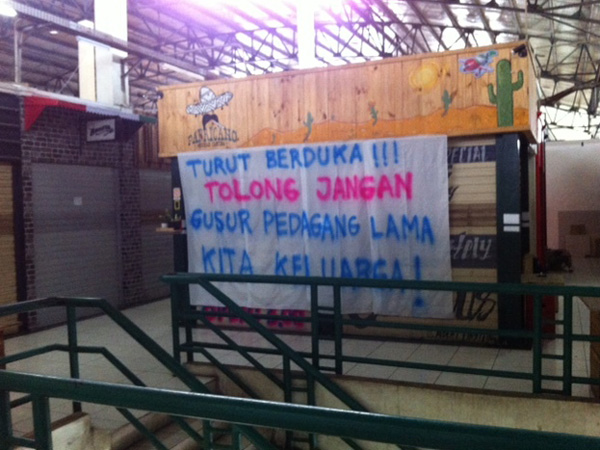 TURUT BERDUKA!!!
TOLONG JANGAN
GUSUR PEDAGANG LAMA
KITA KELUARGA!